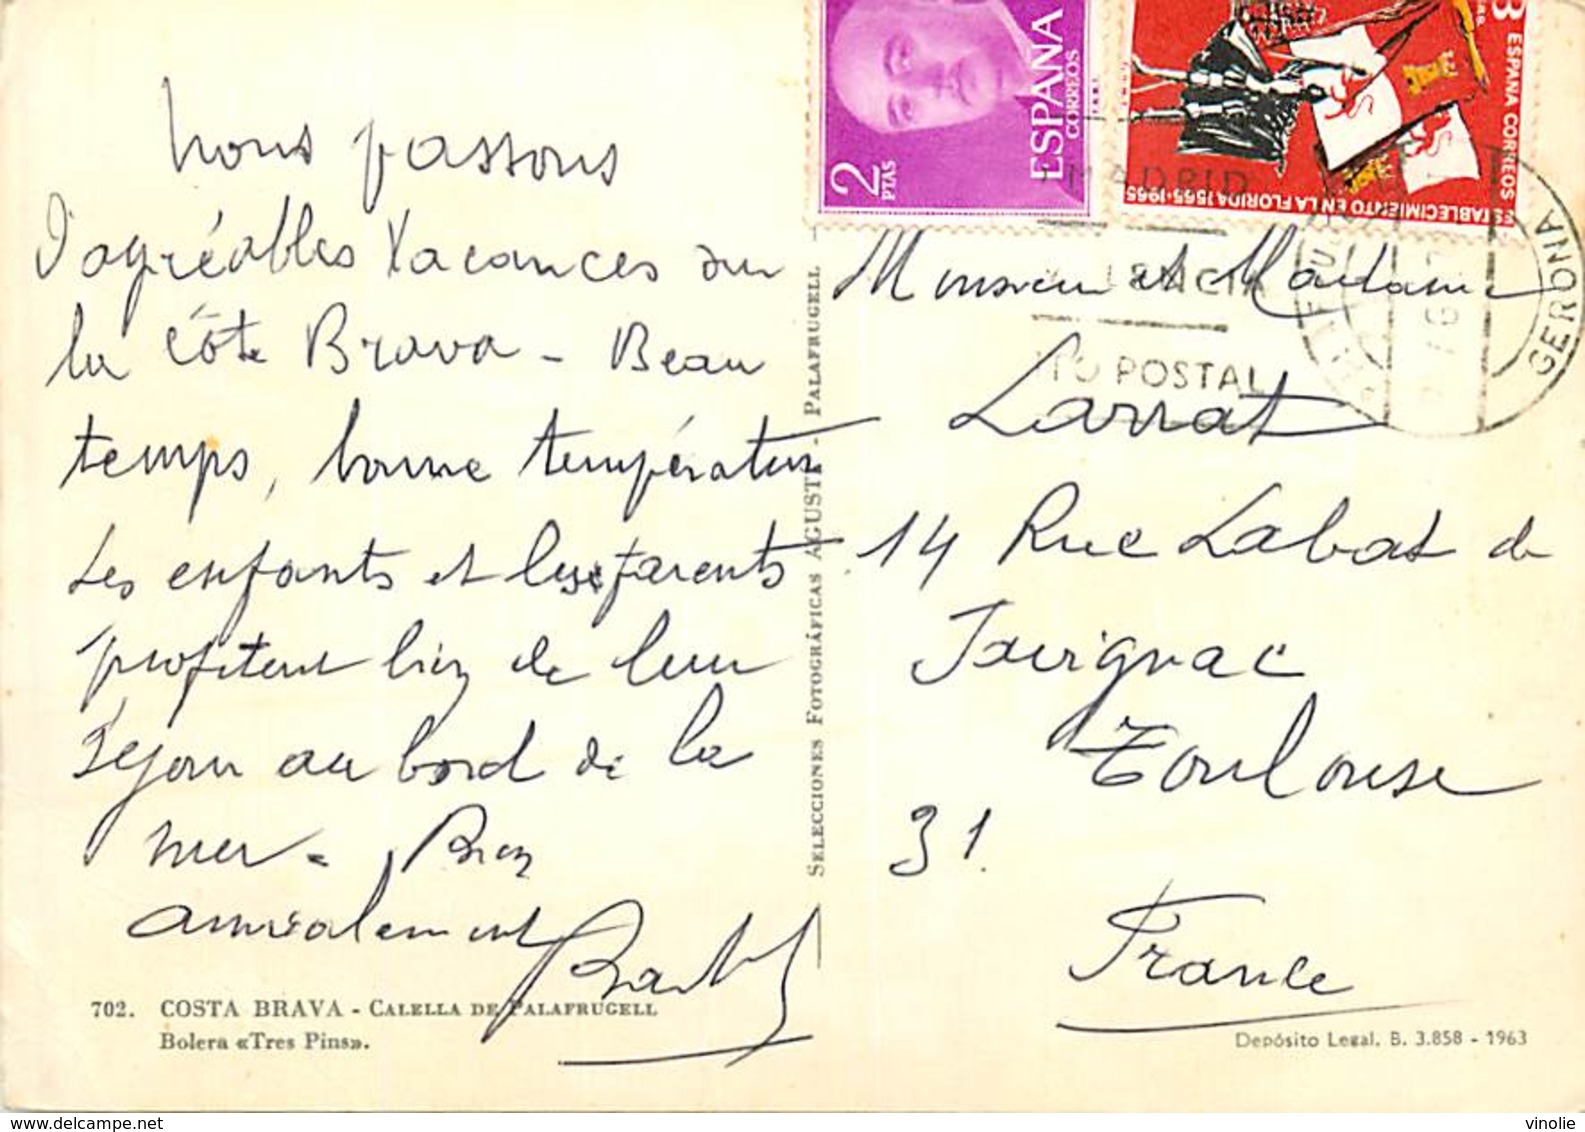 Nous passons
d'agréables Vacances sur
la Côte Brava - Beau
temps, bonne température
Les enfants et les parents
profitent bien de leur
séjour au bord de la
mer - Bien
amicalement
702. COSTA BRAVA - CALELLA DE PALAFRUGELL
Bolera «Tres Pins».
SELECCIONES FOTOGRÁFICAS AGUSTI - PALAFRUGELL
2 PTAS
ESPAÑA
CORREOS
3
ESPAÑA CORREOS
ESTABLECIMIENTO EN LA FLORIDA 1565-1965
MADRID
POSTAL
GERONA
Monsieur et Madame
Larrat
14 Rue Labat de
Savignac
Toulouse
31.
France
Depósito Legal. B. 3.858 - 1963
vinolie